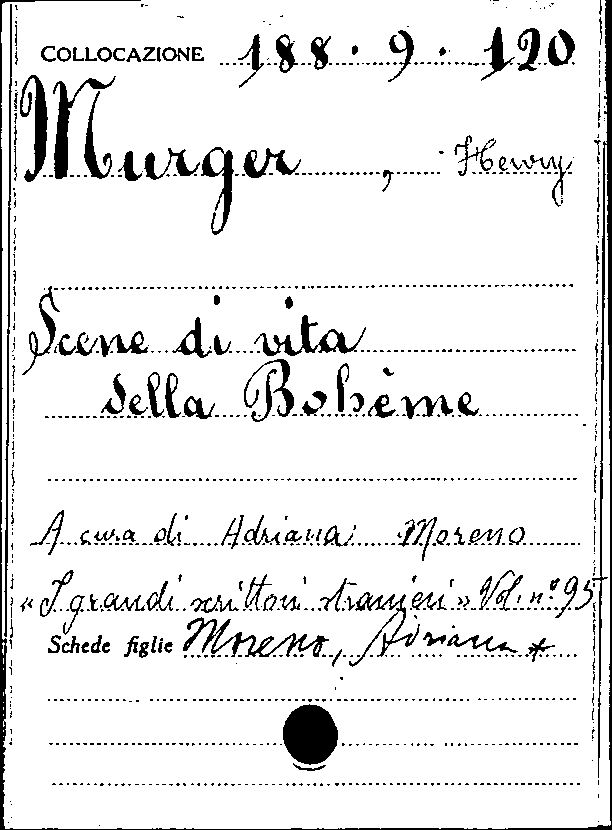 COLLOCAZIONE 188. 9. 120
Murger, Henry
Scene di vita
della Bohème
A cura di Adriana Moreno
« I grandi scrittori stranieri » Vol. n° 95
Schede figlie Moreno, Adriana *